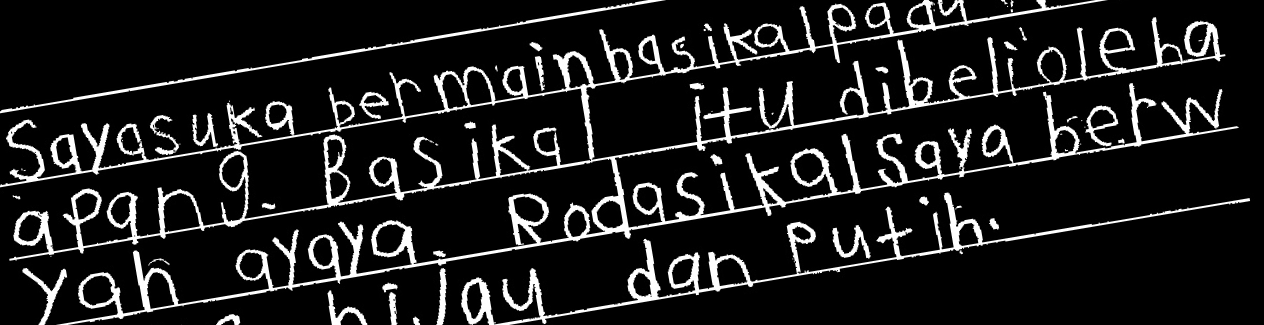 Sayasuka bermainbasikalpada
apang. Basikal itu dibelioleha
yah ayaya. Rodasikalsaya berw
hijau dan putih.